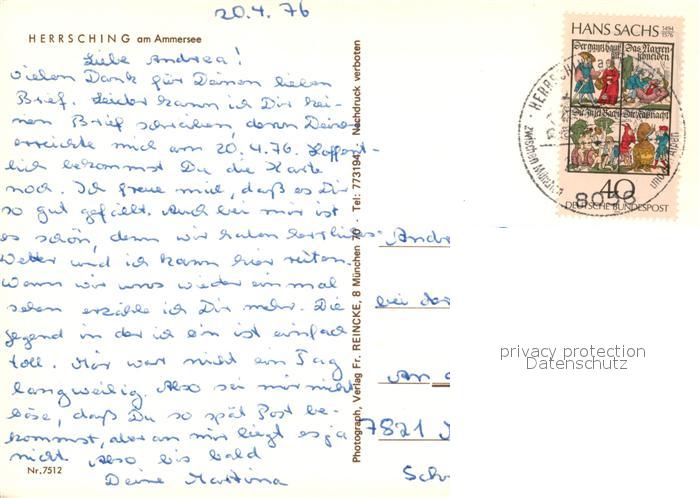 20.4.76
HERRSCHING am Ammersee
Liebe Andrea!
vielen Dank für Deinen lieben
Brief. Leider kann ich Dir kei-
nen Brief schreiben, denn Deiner
erreichte mich am 20.4.76. Hoffent-
lich bekommst Du die Karte
noch. Ich freue mich, daß es Dir
so gut gefällt. Auch bei mir ist
es schön, denn wir haben herrliches
Wetter und ich kann hier reiten.
Wenn wir uns wieder einmal
sehen erzähle ich Dir mehr. Die
gegend in der ich bin ist einfach
toll. Mir war nicht ein Tag
langweilig. Also sei mir nicht
böse, daß Du so spät Post be-
kommst, aber an mir liegt es ja
nicht. Also bis bald
Deine Martina
Nr. 7512
Photograph, Verlag Fr. REINCKE, 8 München 70 · Tel: 773194 Nachdruck verboten
HANS SACHS 1494 1576
Der gantz hauß
Das Narren schneiden
Die Insel Bachi
Die Faßnacht
40
DEUTSCHE BUNDESPOST
HERRSCHING a
8036
zwischen München
und Alpen
Andre
bei de
An d
7821
Sch
privacy protection
Datenschutz